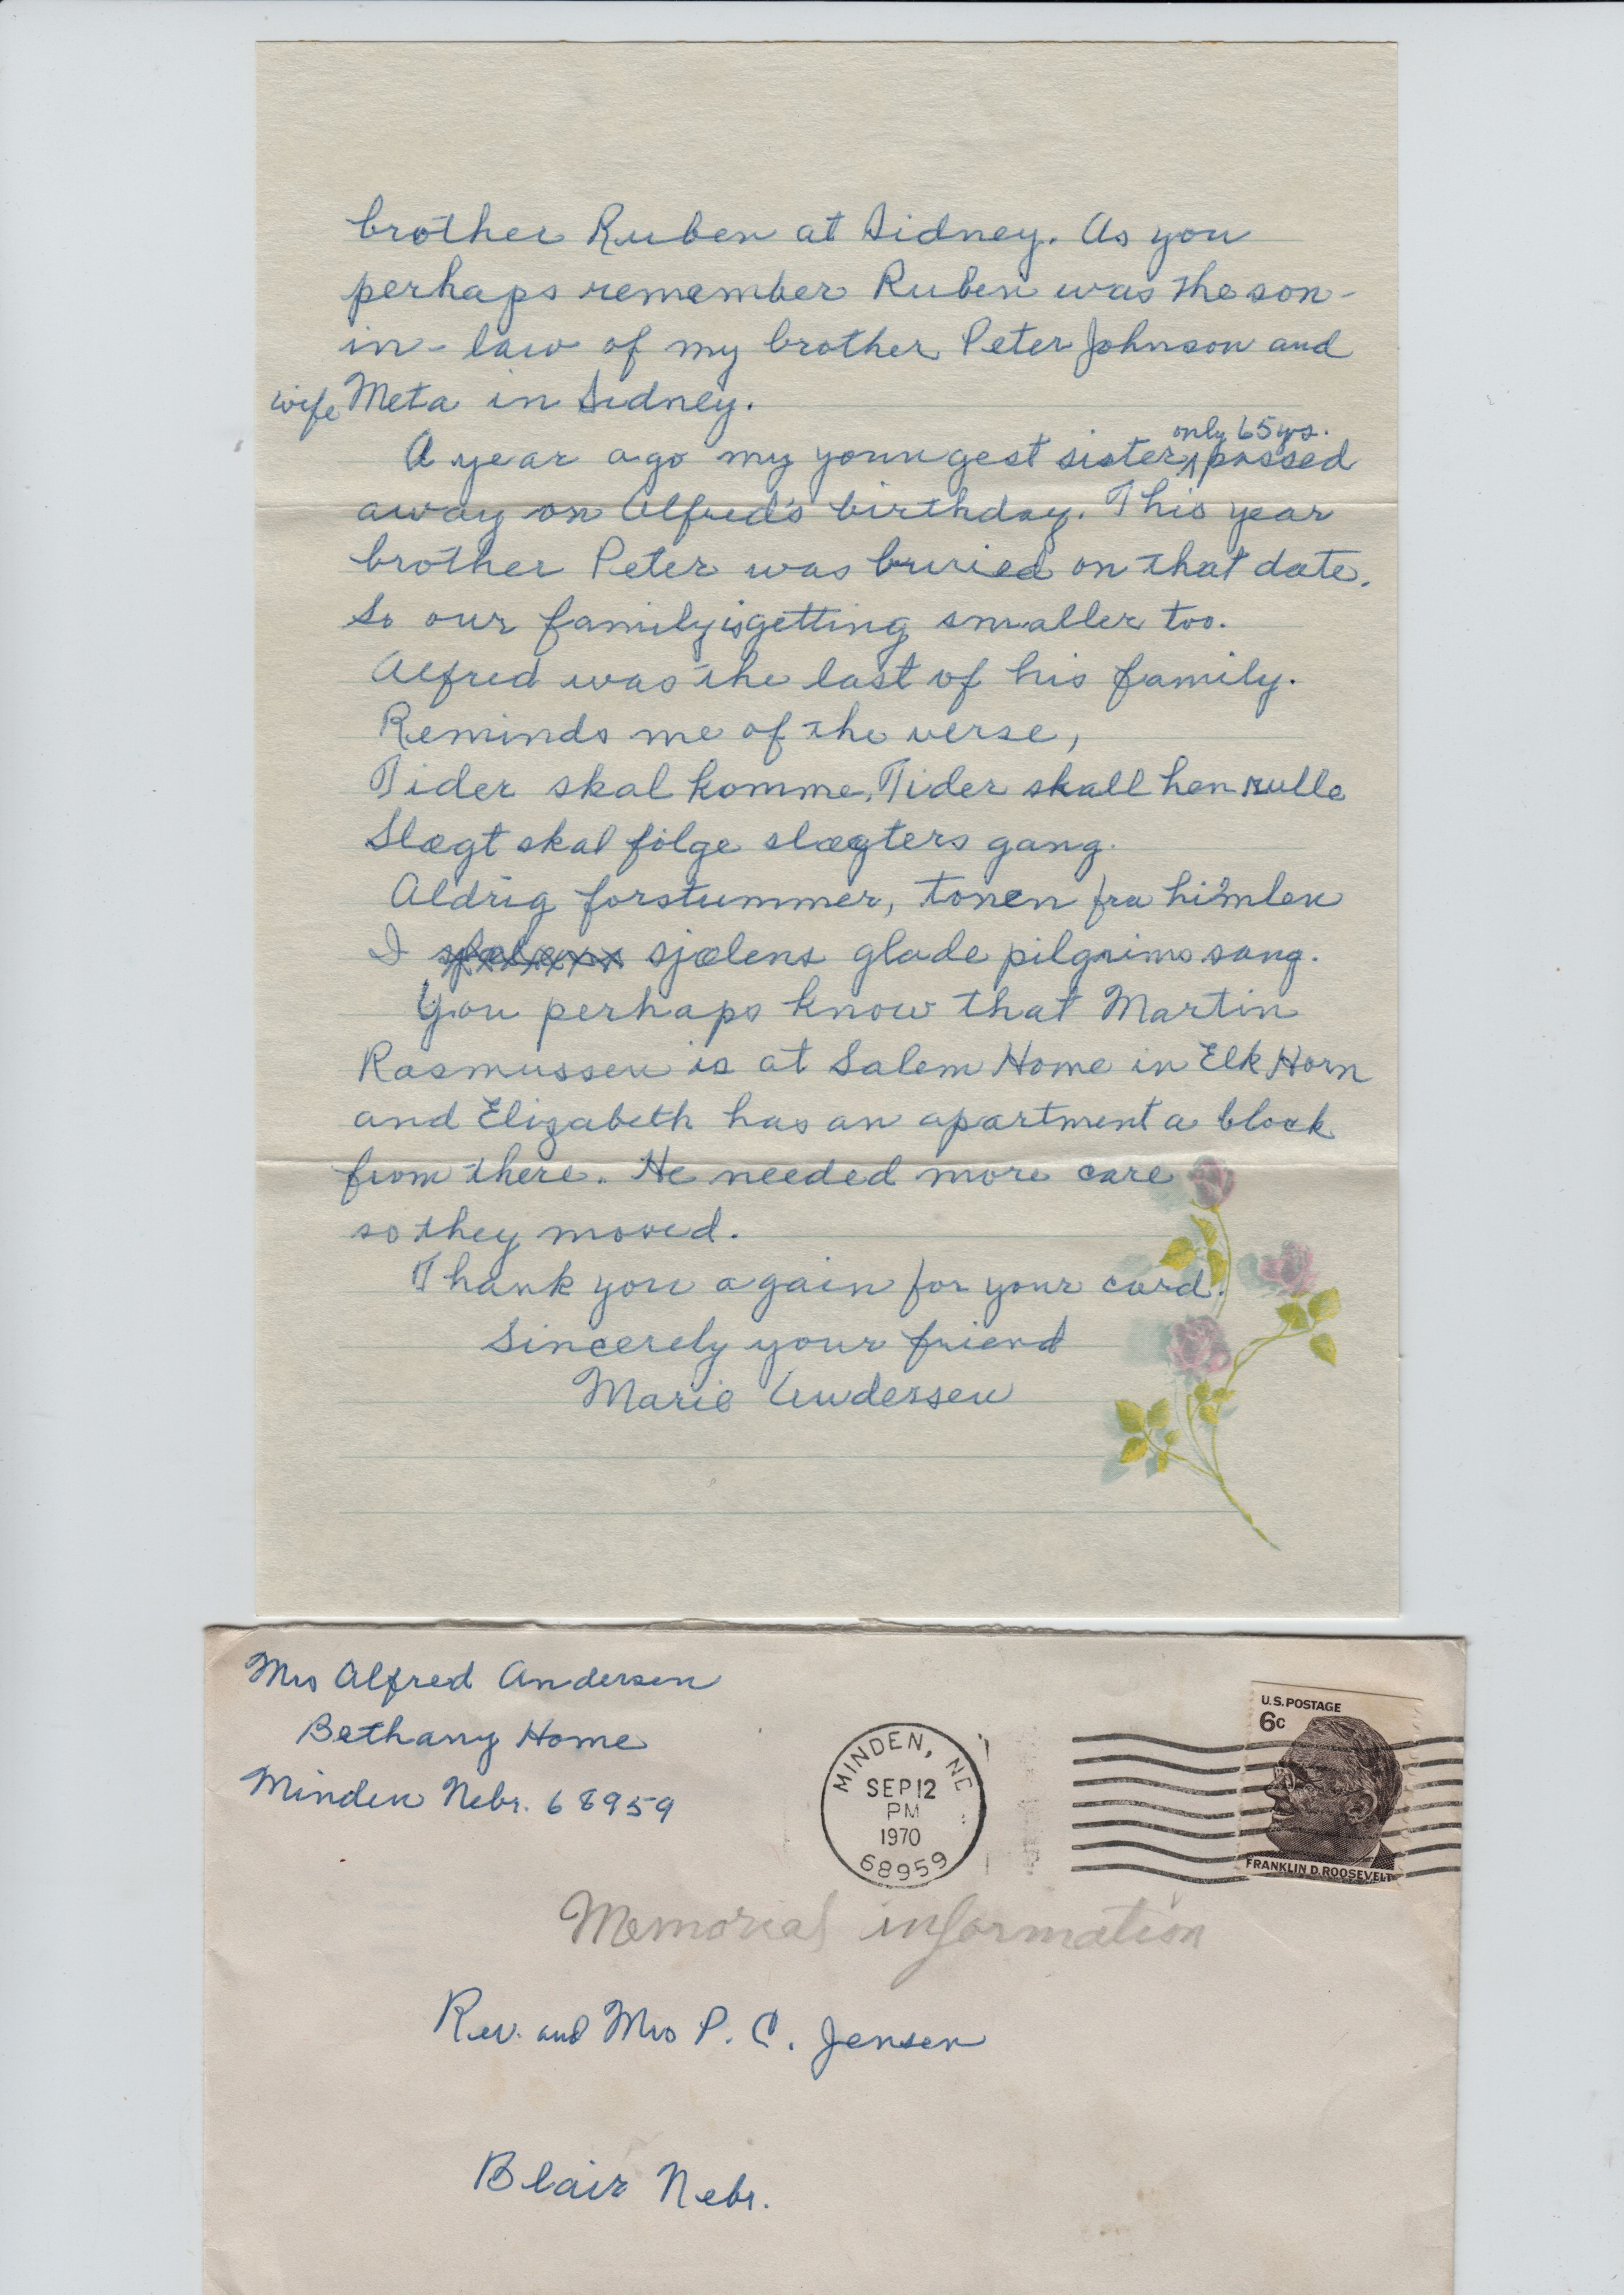 brother Ruben at Sidney. As you
perhaps remember Ruben was the son-
in-law of my brother Peter Johnson and
wife Meta in Sidney.
only 65 yrs.
A year ago my youngest sister, passed
away on Alfred's birthday. This year
brother Peter was buried on that date.
So our family is getting smaller too.
Alfred was the last of his family.
Reminds me of the verse,
Tider skal komme, Tider skall hen rulle
Slægt skal følge slægters gang.
Aldrig forstummer, tonen fra himlen
I sjælens glade pilgrims sang.
You perhaps know that Martin
Rasmussen is at Salem Home in Elk Horn
and Elizabeth has an apartment a block
from there. He needed more care
so they moved.
Thank you again for your card.
Sincerely your friend
Marie Andersen
Mrs Alfred Andersen
Bethany Home
Minden Nebr. 68959
MINDEN, NE
SEP 12
PM
1970
68959
U.S. POSTAGE
6c
FRANKLIN D. ROOSEVELT
Memorial information
Rev. and Mrs P. C. Jensen
Blair Nebr.